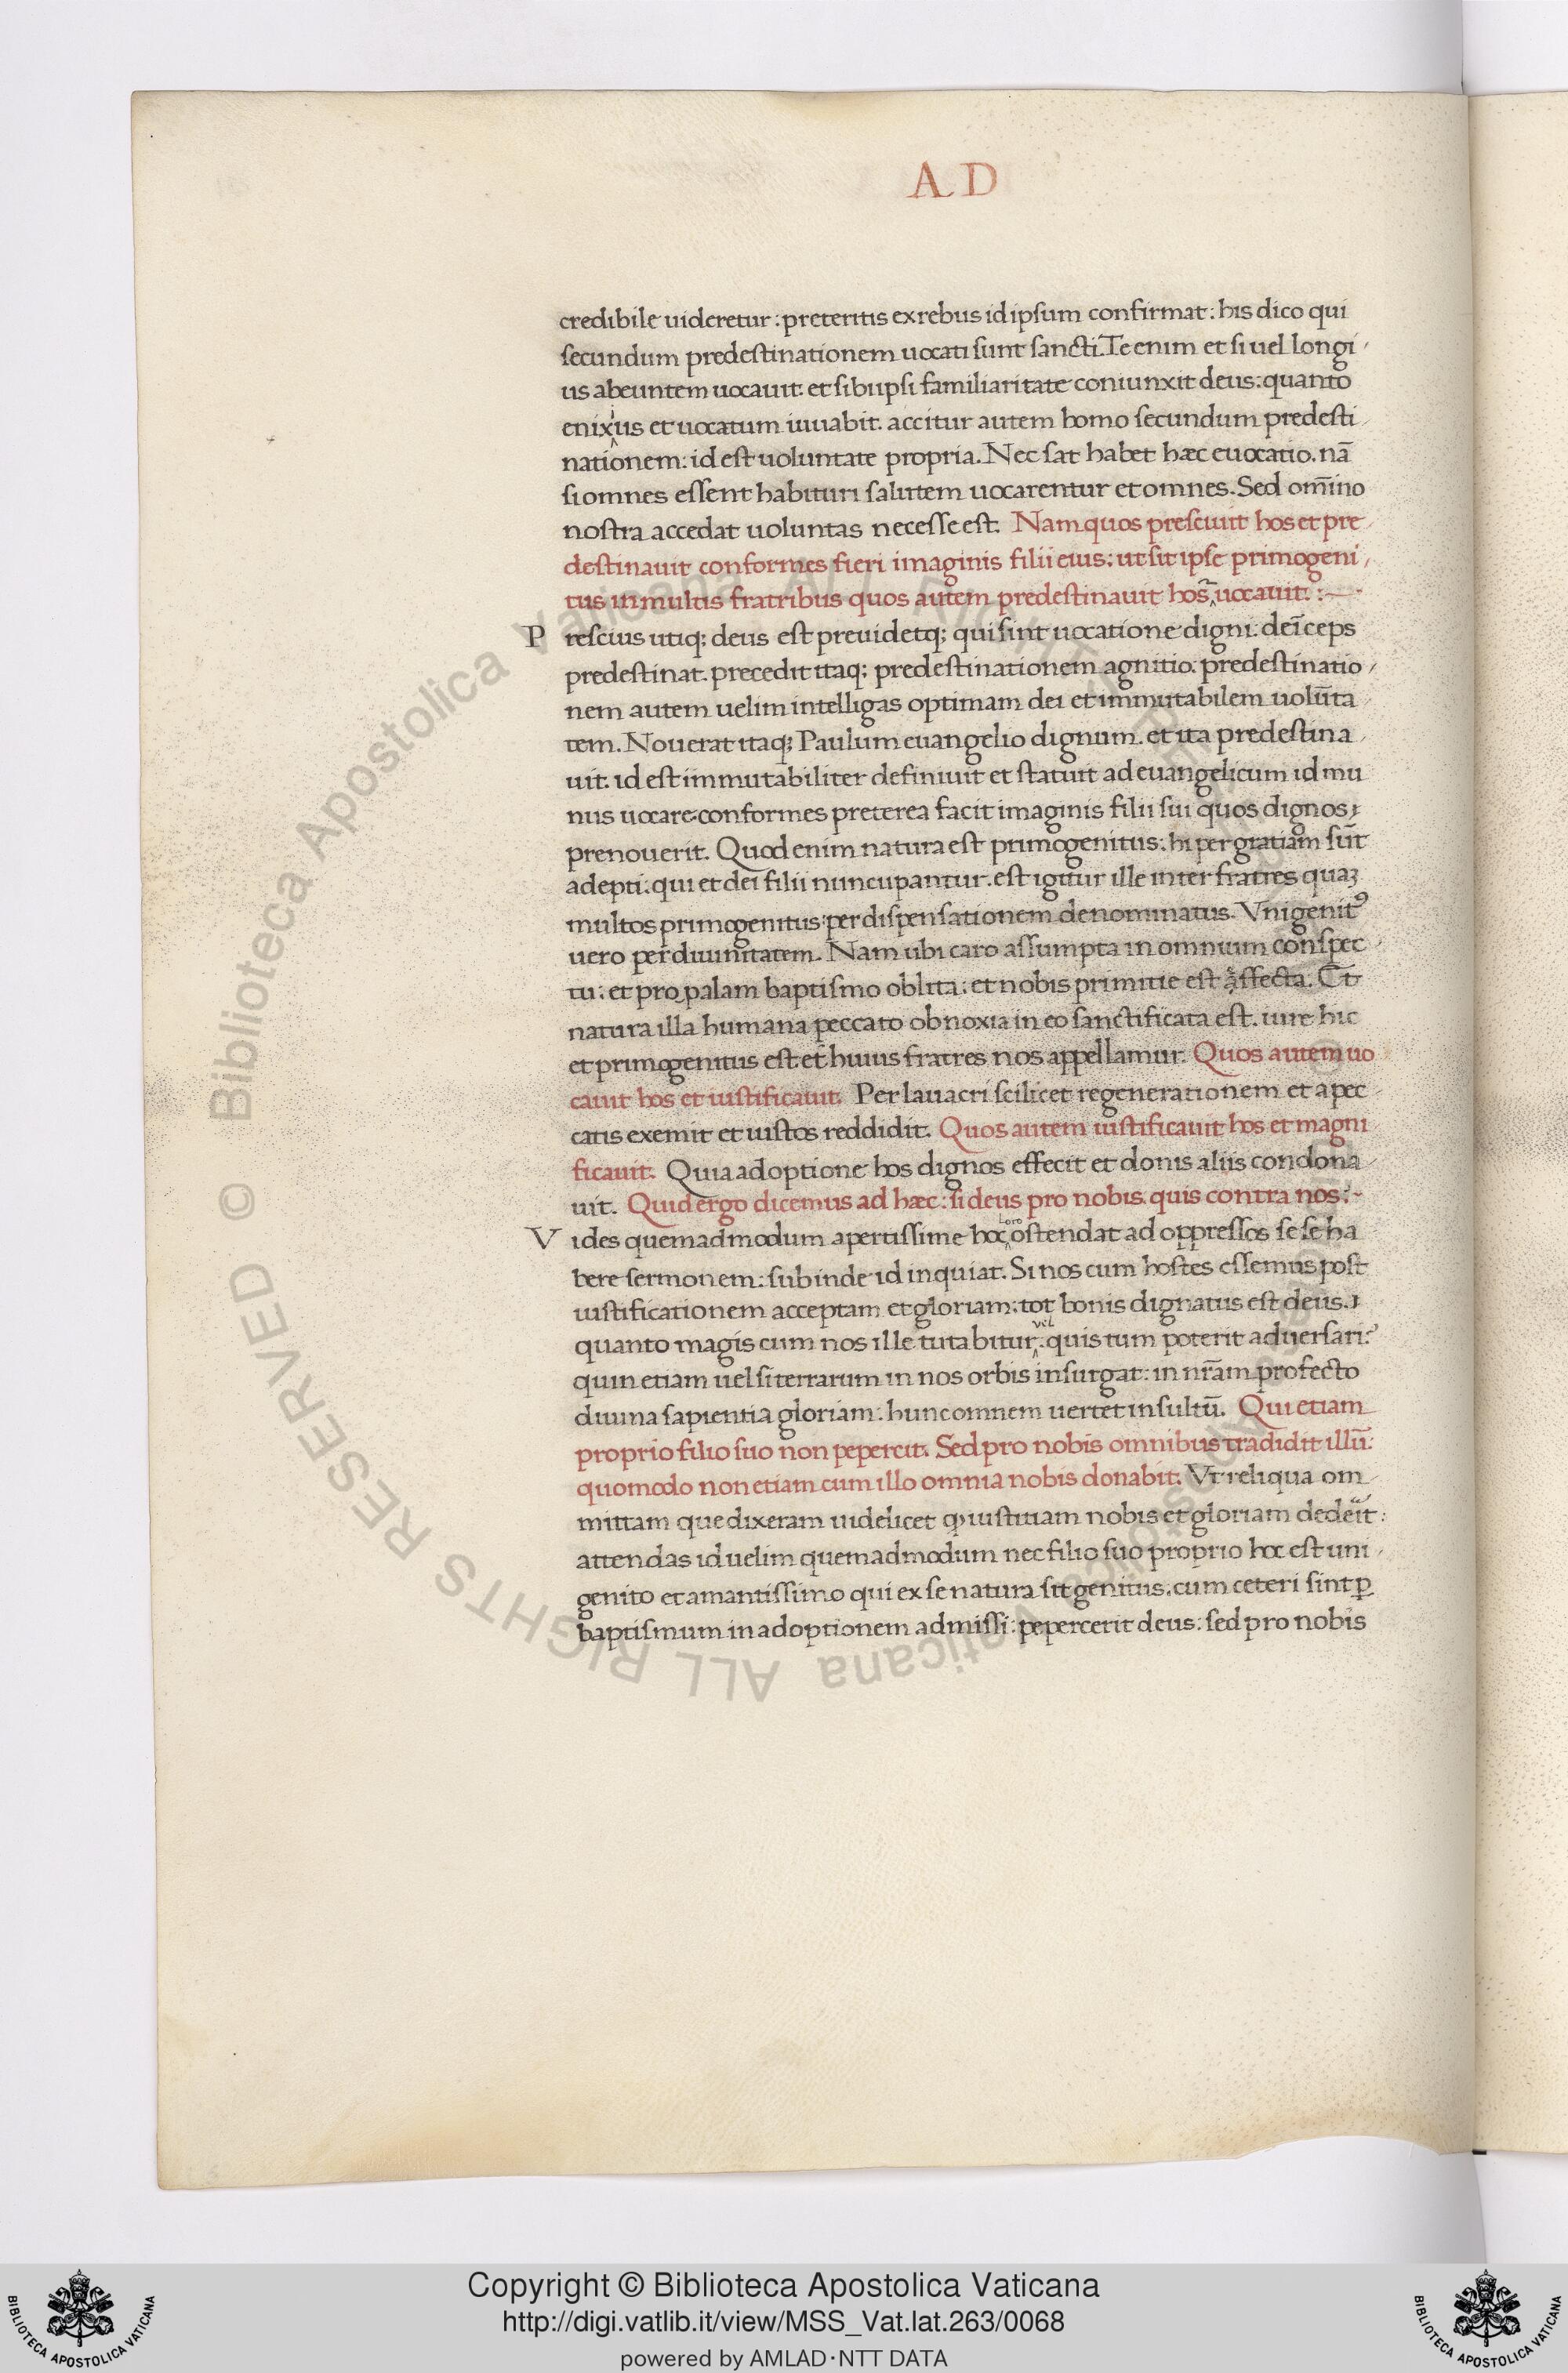 A D
credibile uideretur: preteritis ex rebus id ipsum confirmat: his dico qui
secundum predestinationem uocati sunt sancti. Te enim et si uel longi
us abeuntem uocauit. et sibi ipsi familiaritate coniunxit deus: quanto
enixius et uocatum iuuabit. accitur autem homo secundum predesti
nationem: id est uoluntate propria. Nec sat habet hæc euocatio. nā
si omnes essent habituri salutem uocarentur et omnes. Sed om̄ino
nostra accedat uoluntas necesse est. Nam quos presciuit hos et pre
destinauit conformes fieri imaginis filii eius: ut sit ipse primogeni
tus in multis fratribus quos autem predestinauit hos uocauit:
P rescius utiq; deus est preuidetq; qui sint uocatione digni. deīceps
predestinat. precedit itaq; predestinationem agnitio. predestinatio
nem autem uelim intelligas optimam dei et immutabilem uolūta
tem. Nouerat itaq; Paulum euangelio dignum. et ita predestina
uit. id est immutabiliter definiuit et statuit ad euangelicum id mu
nus uocare. conformes preterea facit imaginis filii sui quos dignos
prenouerit. Quod enim natura est primogenitus: hi per gratiam sūt
adepti: qui et dei filii nuncupantur. est igitur ille inter fratres quaʒ
multos primogenitus: per dispensationem denominatus. Vnigenitꝰ
uero per diuinitatem. Nam ubi caro assumpta in omnium conspec
tu: et pro palam baptismo oblita: et nobis primitie est affecta. Et
natura illa humana peccato obnoxia in eo sanctificata est. iure hic
et primogenitus est. et huius fratres nos appellamur. Quos autem uo
cauit hos et iustificauit. Per lauacri scilicet regenerationem et a pec
catis exemit et iustos reddidit. Quos autem iustificauit hos et magni
ficauit. Quia adoptione hos dignos effecit et donis aliis condona
uit. Quid ergo dicemus ad hæc: si deus pro nobis. quis contra nos:
V ides quemadmodum apertissime hoc loco ostendat ad oppressos se se ha
bere sermonem: subinde id inquiat. Si nos cum hostes essemus post
iustificationem acceptam et gloriam: tot bonis dignatus est deus.
quanto magis cum nos ille tutabitur: uel quis tum poterit aduersari?
quin etiam uel si terrarum in nos orbis insurgat: in nr̄am profecto
diuina sapientia gloriam: hunc omnem uertet insultū. Qui etiam
proprio filio suo non pepercit. Sed pro nobis omnibus tradidit illū:
quomodo non etiam cum illo omnia nobis donabit. Vt reliqua om
mittam que dixeram uidelicet ꝙ iustitiam nobis et gloriam dederit:
attendas id uelim quemadmodum nec filio suo proprio hoc est uni
genito et amantissimo qui ex se natura sit genitus. cum ceteri sint ꝑ
baptismum in adoptionem admissi: pepercerit deus: sed pro nobis
© Biblioteca Apostolica Vaticana ALL RIGHTS RESERVED
Copyright © Biblioteca Apostolica Vaticana
http://digi.vatlib.it/view/MSS_Vat.lat.263/0068
powered by AMLAD·NTT DATA
BIBLIOTECA APOSTOLICA VATICANA
BIBLIOTECA APOSTOLICA VATICANA